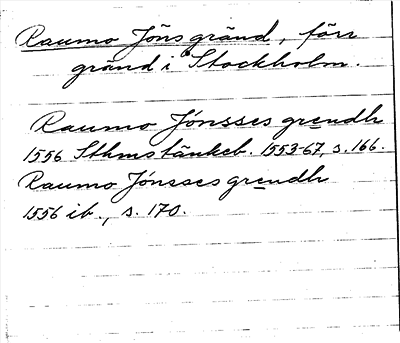 Raumo Jöns gränd, förr
gränd i Stockholm.
Raumo Jónsses grendh
1556 Sthms tänkeb. 1553-67, s. 166.
Raumo Jónsses grendh
1556 ib., s. 170.